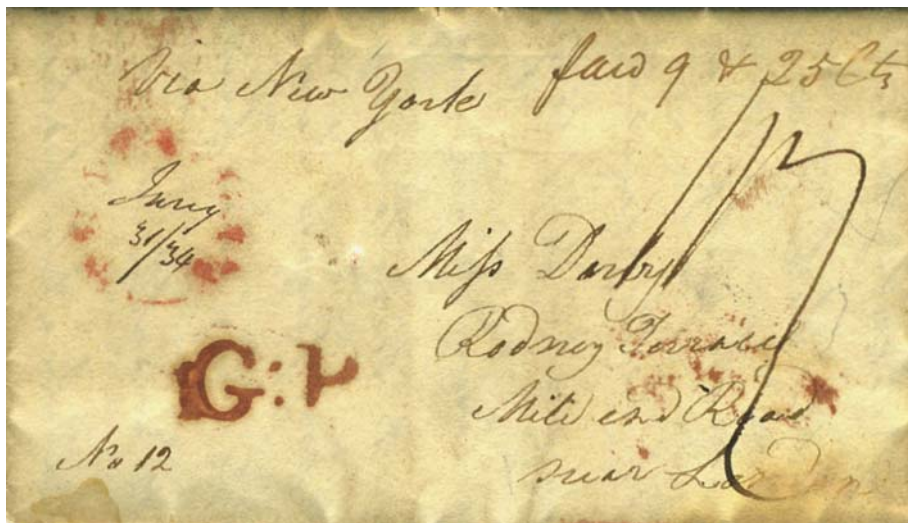 Via New York paid 9 & 25 Cts
Jany
31/34
Miss Darby
Rodney Terrace
Mile end Road
near London
G:P
No 12